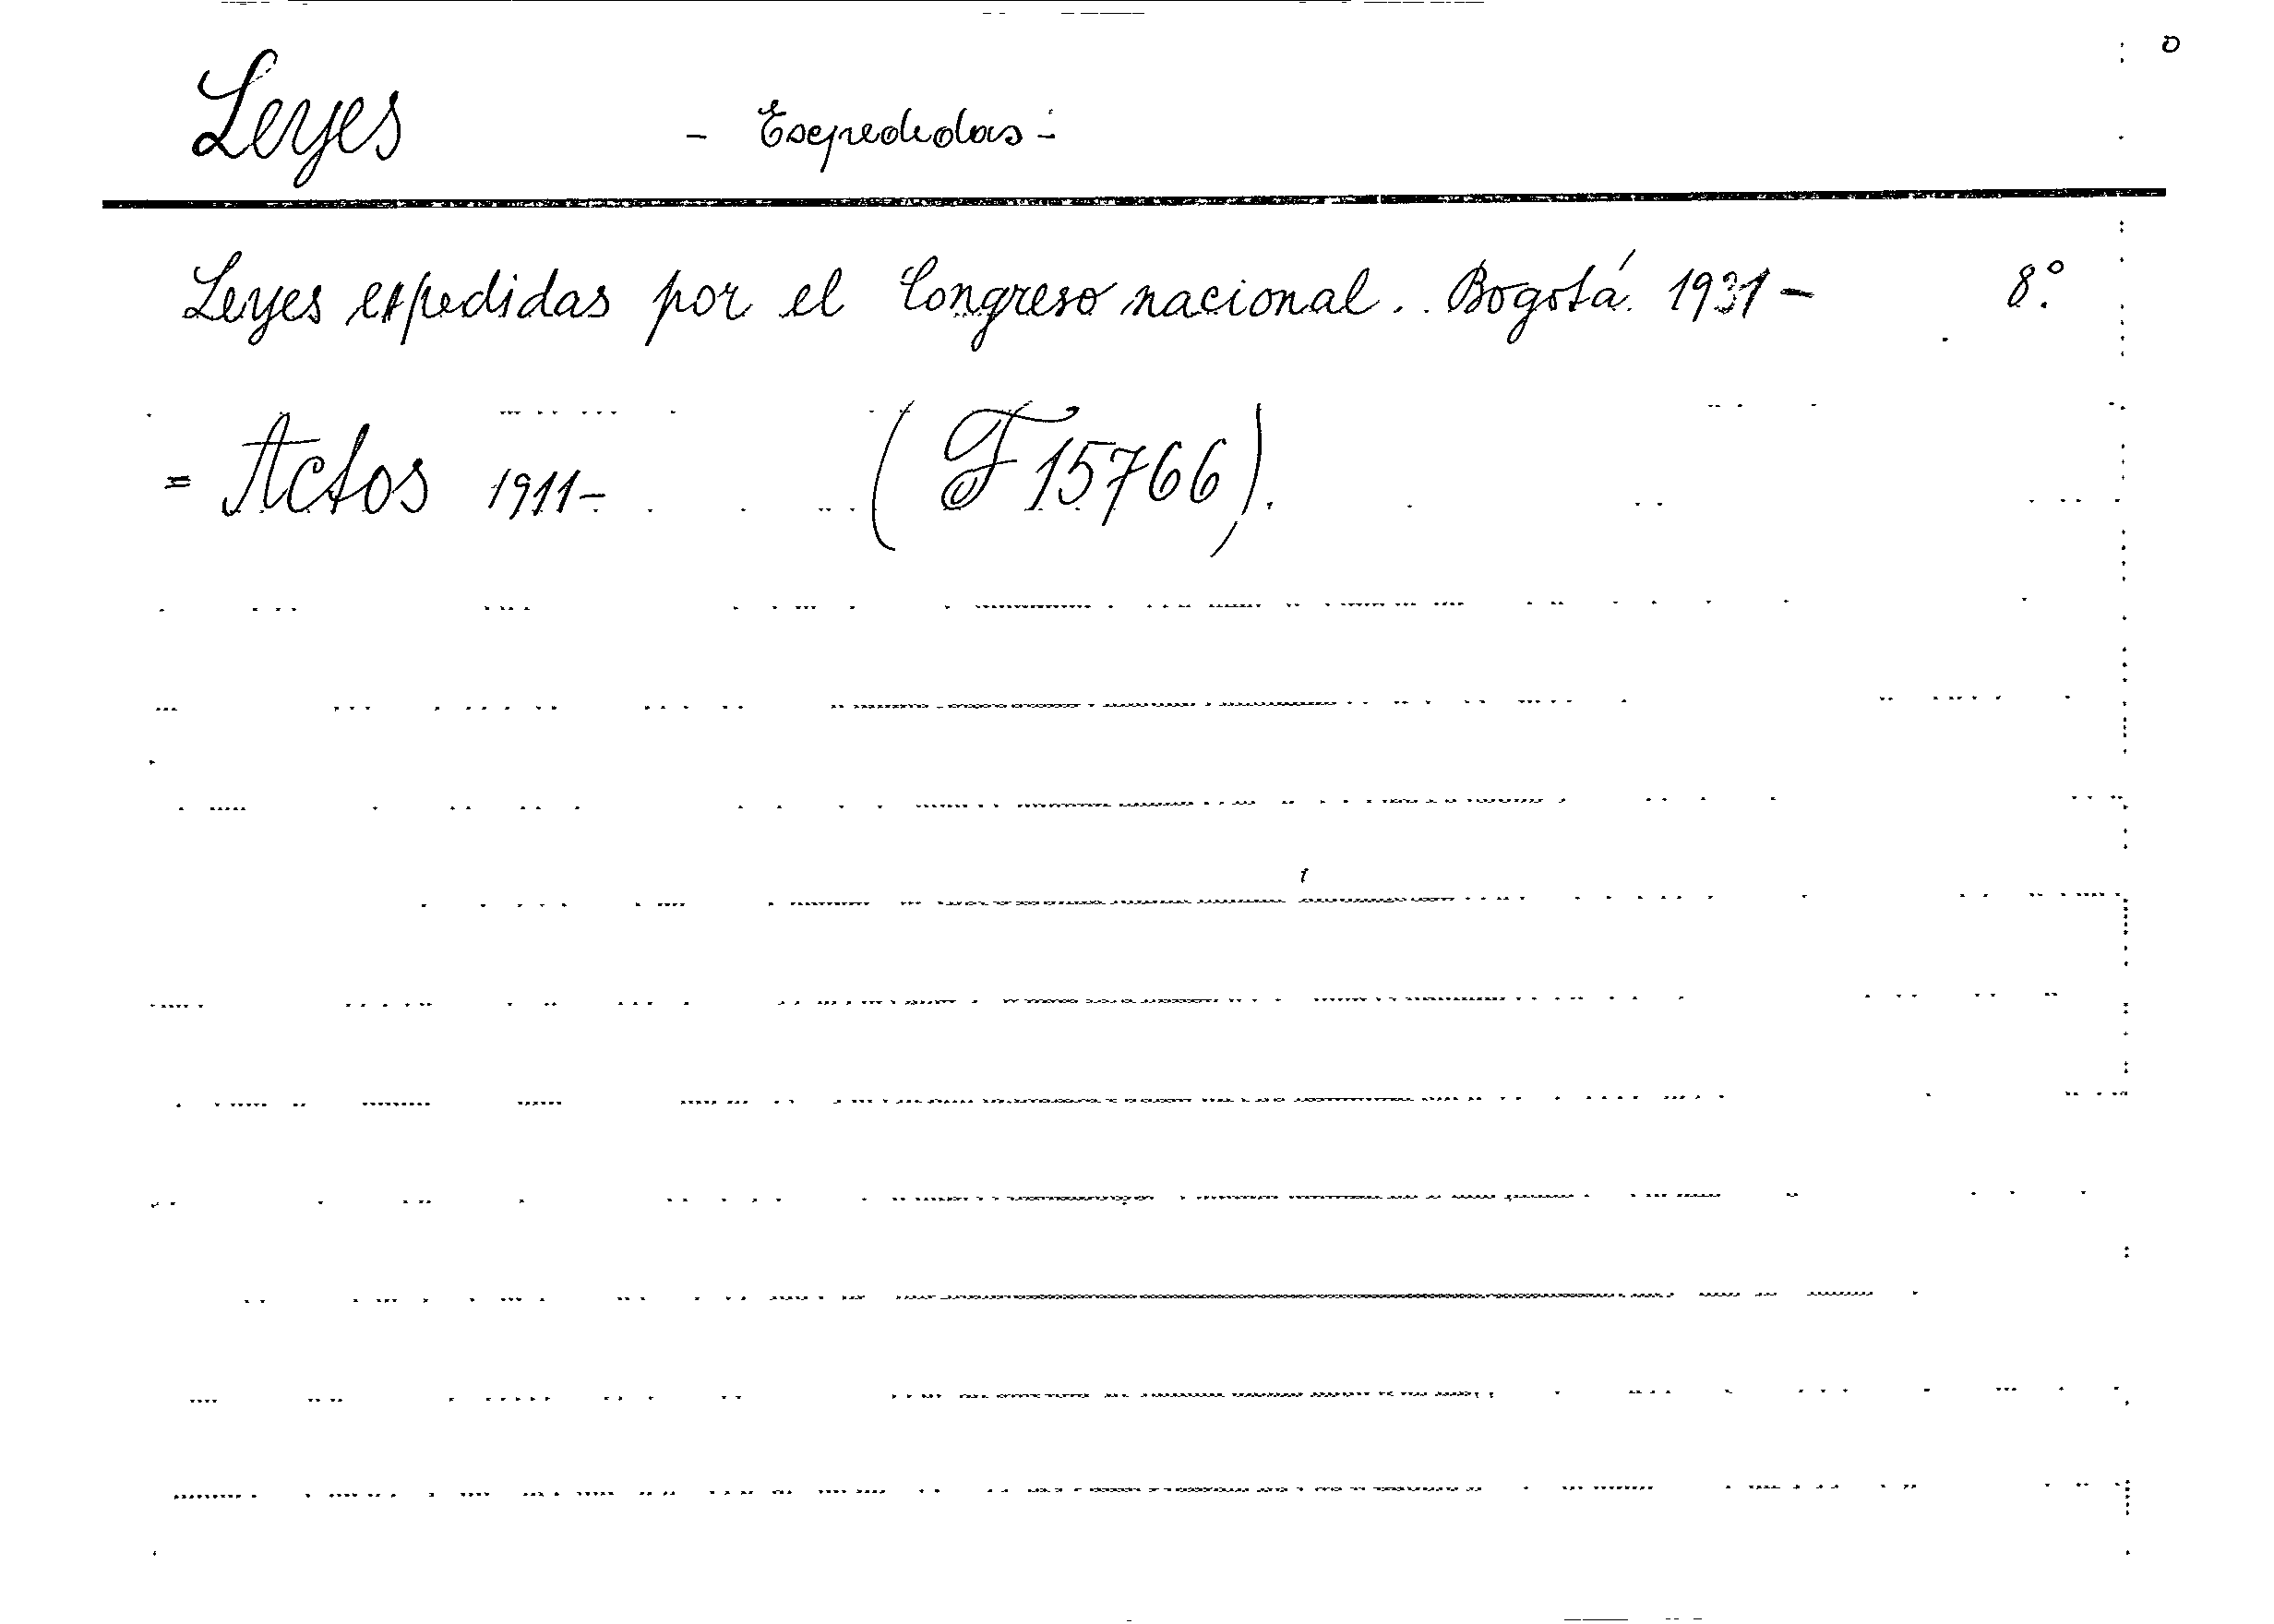 Leyes - Expedidas -
Leyes expedidas por el Congreso nacional.. Bogotá. 1931- 8.º
= Actos 1911- (F 15766).